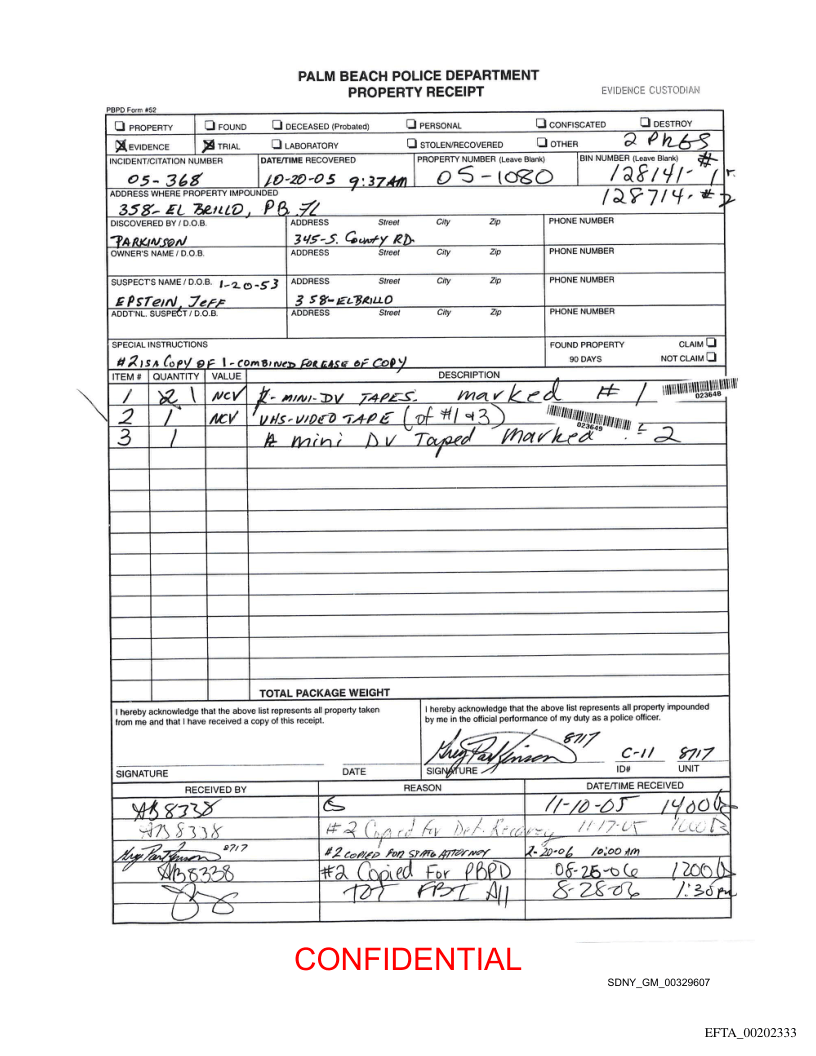 PALM BEACH POLICE DEPARTMENT
PROPERTY RECEIPT
EVIDENCE CUSTODIAN
PBPD Form #52
PROPERTY FOUND DECEASED (Probated) PERSONAL CONFISCATED DESTROY
EVIDENCE TRIAL LABORATORY STOLEN/RECOVERED OTHER 2 PKGS
INCIDENT/CITATION NUMBER DATE/TIME RECOVERED PROPERTY NUMBER (Leave Blank) BIN NUMBER (Leave Blank) #
05-368 10-20-05 9:37AM 05-1080 128141-1
128714-#2
ADDRESS WHERE PROPERTY IMPOUNDED
358-EL BRILLO, PB FL
DISCOVERED BY / D.O.B. ADDRESS Street City Zip PHONE NUMBER
PARKINSON 345-S. County RD.
OWNER'S NAME / D.O.B. ADDRESS Street City Zip PHONE NUMBER
SUSPECT'S NAME / D.O.B. 1-20-53 ADDRESS Street City Zip PHONE NUMBER
EPSTEIN, JEFF 358-ELBRILLO
ADDT'NL. SUSPECT / D.O.B. ADDRESS Street City Zip PHONE NUMBER
SPECIAL INSTRUCTIONS FOUND PROPERTY CLAIM
#2 IS A COPY OF 1-COMBINED FOR EASE OF COPY 90 DAYS NOT CLAIM
ITEM # QUANTITY VALUE DESCRIPTION
1 1 NCV MINI-DV TAPES. marked #1 023648
2 1 NCV VHS-VIDEO TAPE (of #1 & 3) 023649
3 1 A mini DV Taped Marked 2
TOTAL PACKAGE WEIGHT
I hereby acknowledge that the above list represents all property taken
from me and that I have received a copy of this receipt.
I hereby acknowledge that the above list represents all property impounded
by me in the official performance of my duty as a police officer.
Greg Parkinson 8717 C-11 8717
SIGNATURE DATE SIGNATURE ID# UNIT
RECEIVED BY REASON DATE/TIME RECEIVED
AB 8338 11-10-05 1400
AB 8338 #2 Copied for Det. Recarey 11-17-05
Greg Parkinson 8717 #2 COPIED FOR STATE ATTORNEY 2-20-06 10:00 AM
AB 8338 #2 Copied For PBPD 08-25-06 1200
TOT FBI All 8-28-06 1:30pm
CONFIDENTIAL
SDNY_GM_00329607
EFTA_00202333